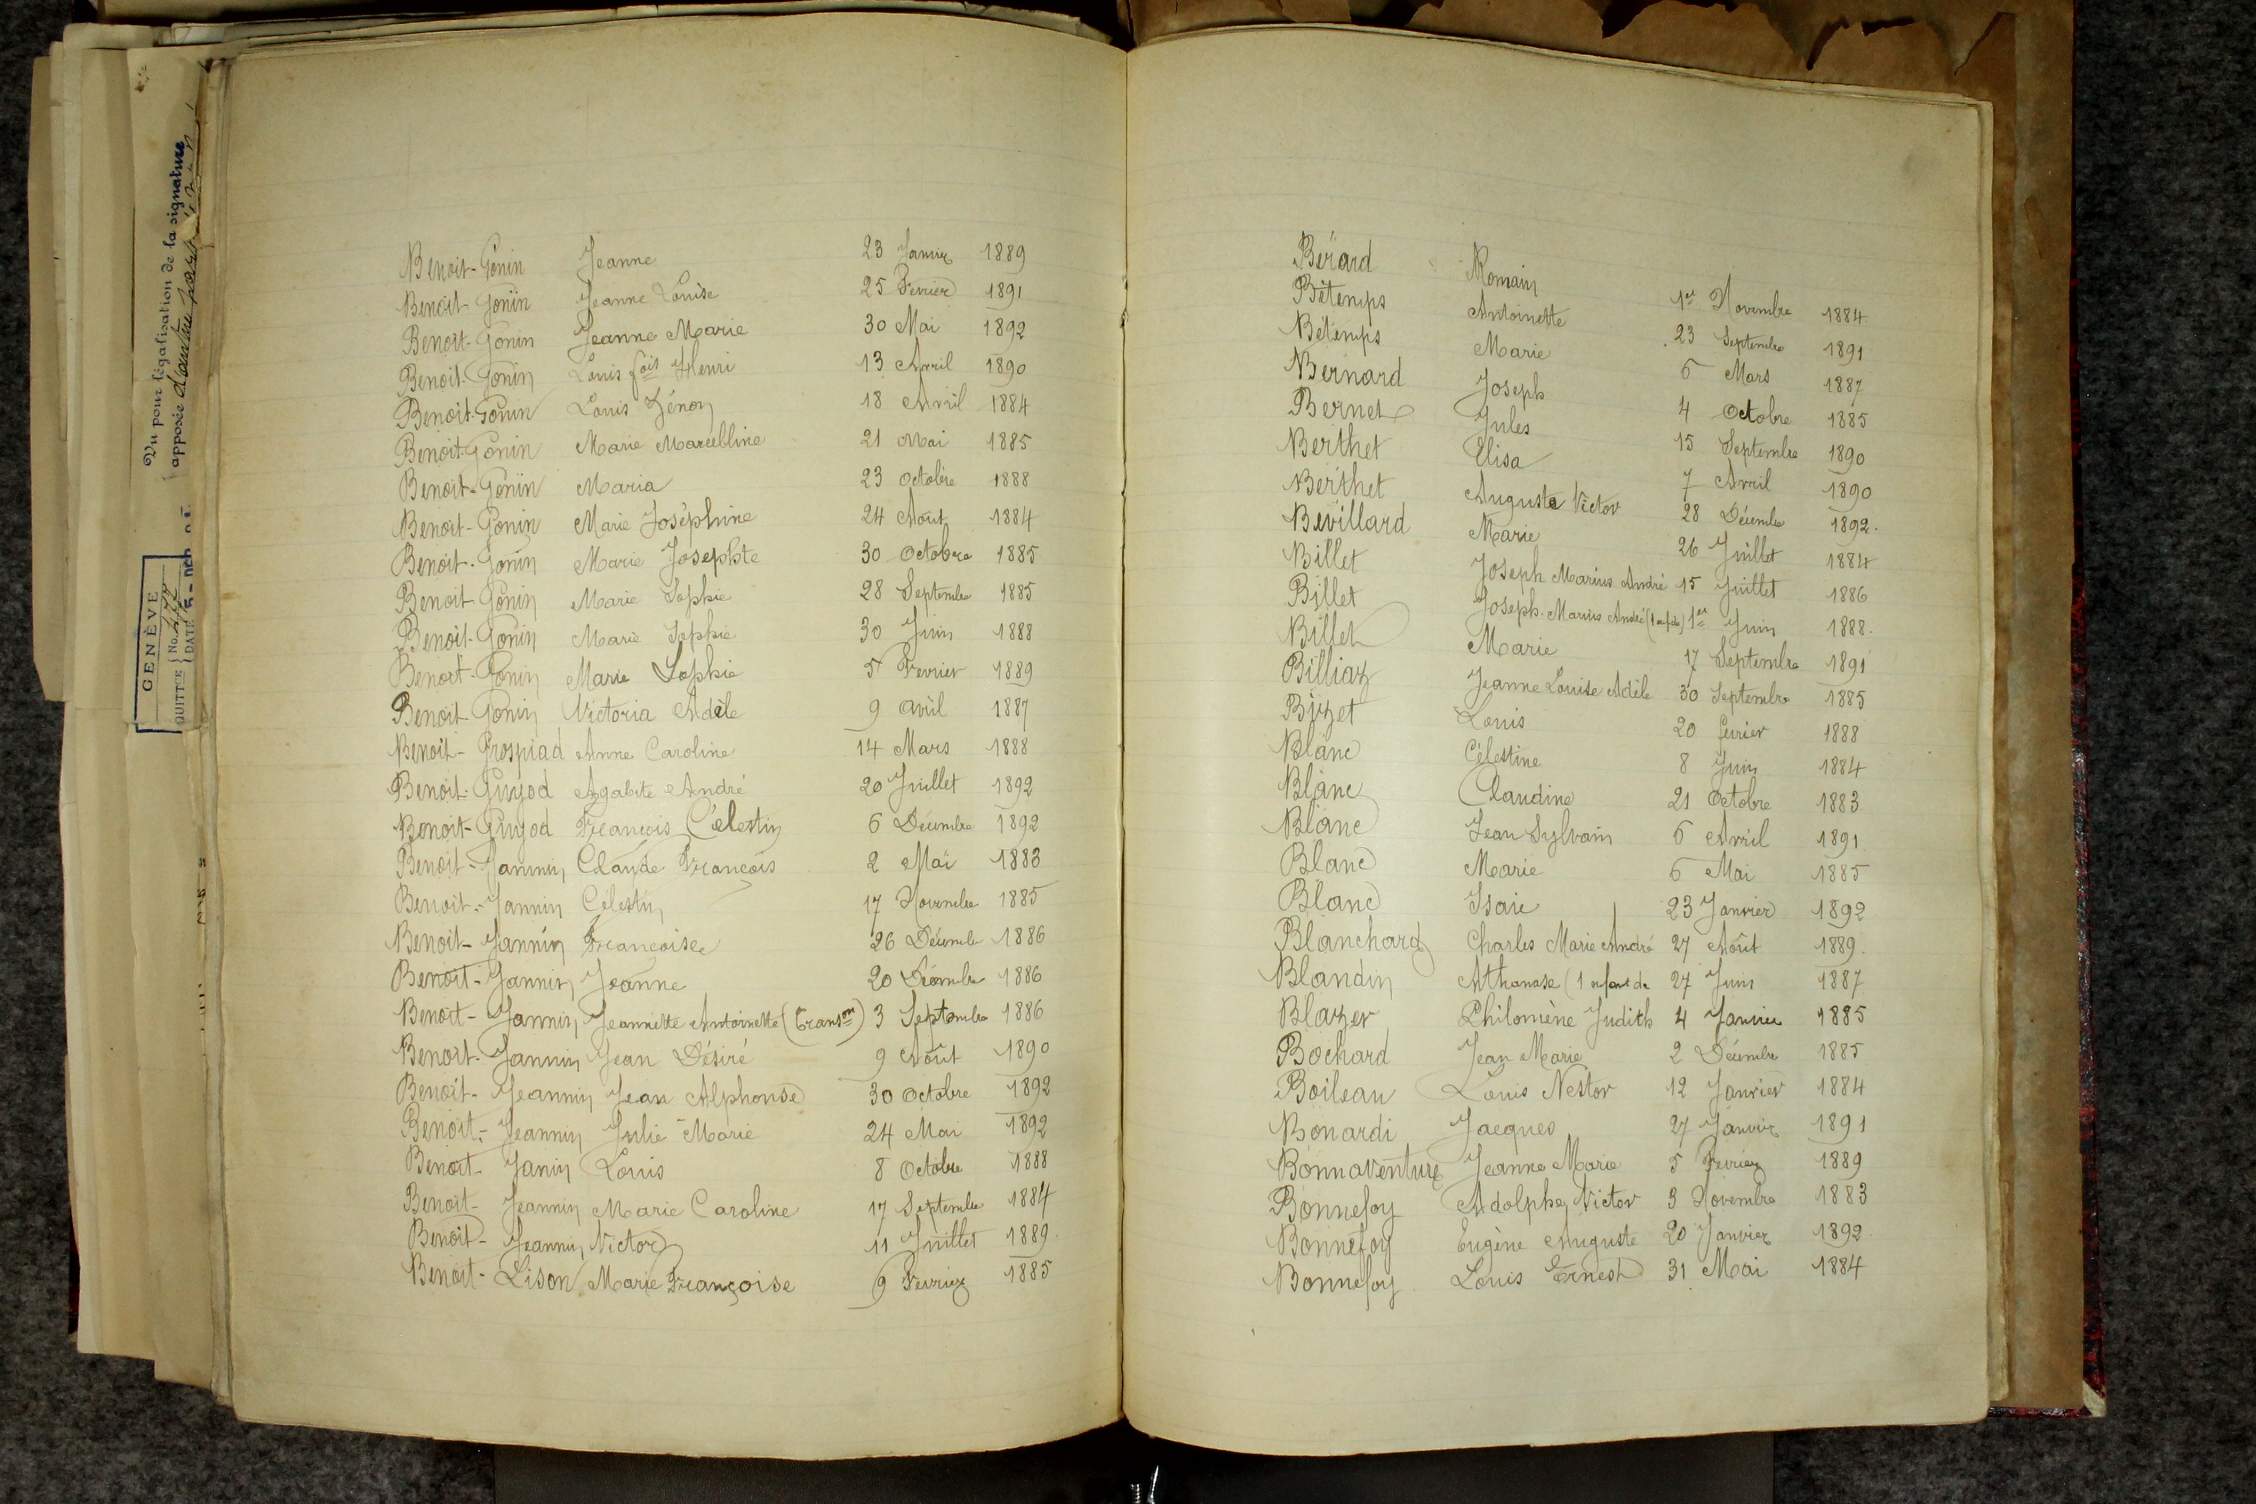 Vu pour légalisation de la signature
apposée d'autre part
GENÈVE
QUITTCE No.
DATE
Benoit-Gonin Jeanne 23 Janvier 1889
Benoit-Gonin Jeanne Louise 25 Fevrier 1891
Benoit-Gonin Jeanne Marie 30 Mai 1892
Benoit-Gonin Louis fois Henri 13 Avril 1890
Benoit-Gonin Louis Zénon 18 Avril 1884
Benoit-Gonin Marie Marcelline 21 Mai 1885
Benoit-Gonin Maria 23 Octobre 1888
Benoit-Gonin Marie Joséphine 24 Août 1884
Benoit-Gonin Marie Josephte 30 Octobre 1885
Benoit-Gonin Marie Sophie 28 Septembre 1885
Benoit-Gonin Marie Sophie 30 Juin 1888
Benoit-Gonin Marie Sophie 5 Fevrier 1889
Benoit-Gonin Victoria Adèle 9 Avril 1887
Benoit-Grospiad Anne Caroline 14 Mars 1888
Benoit-Guyod Agabite André 20 Juillet 1892
Benoit-Guyod François Célestin 6 Décembre 1892
Benoit-Jannin Claude François 2 Mai 1883
Benoit-Jannin Célestin 17 Novembre 1885
Benoit-Jannin Françoise 26 Décembre 1886
Benoit-Jannin Jeanne 20 Décembre 1886
Benoit-Jannin Jeannette Antoinette (Transon) 3 Septembre 1886
Benoit-Jannin Jean Désiré 9 Août 1890
Benoit-Jeannin Jean Alphonse 30 Octobre 1892
Benoit-Jeannin Julie-Marie 24 Mai 1892
Benoit-Janin Louis 8 Octobre 1888
Benoit-Jeannin Marie Caroline 17 Septembre 1884
Benoit-Jeannin Victor 11 Juillet 1889
Benoit-Lison Marie Françoise 9 Fevrier 1885
Bérard Romain 1er Novembre 1884
Bétemps Antoinette 23 Septembre 1891
Bétemps Marie 6 Mars 1887
Bernard Joseph 4 Octobre 1885
Bernet Jules 15 Septembre 1890
Berthet Elisa 7 Avril 1890
Berthet Auguste Victor 28 Décembre 1892.
Bevillard Marie 26 Juillet 1884
Billet Joseph Marius André 15 Juillet 1886
Billet Joseph Marius André (1 enf de) 1er Juin 1888.
Billet Marie 17 Septembre 1891
Billiaz Jeanne Louise Adèle 30 Septembre 1885
Bizet Louis 20 fevrier 1888
Blanc Célestine 8 Juin 1884
Blanc Claudine 21 Octobre 1883
Blanc Jean Sylvain 6 Avril 1891
Blanc Marie 6 Mai 1885
Blanc Isaie 23 Janvier 1892
Blanchard Charles Marie André 27 Août 1889.
Blandin Athanase (1 enfant de 27 Juin 1887
Blazer Philomène Judith 4 Janvier 1885
Bochard Jean Marie 2 Décembre 1885
Boileau Louis Nestor 12 Janvier 1884
Bonardi Jacques 27 Janvier 1891
Bonnaventure Jeanne Marie 5 Fevrier 1889
Bonnefoy Adolphe Victor 3 Novembre 1883
Bonnefoy Eugène Auguste 20 Janvier 1892
Bonnefoy Louis Ernest 31 Mai 1884